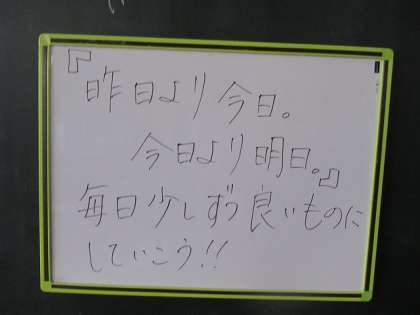 『昨日より今日。
今日より明日。』
毎日少しずつ良いものに
していこう!!